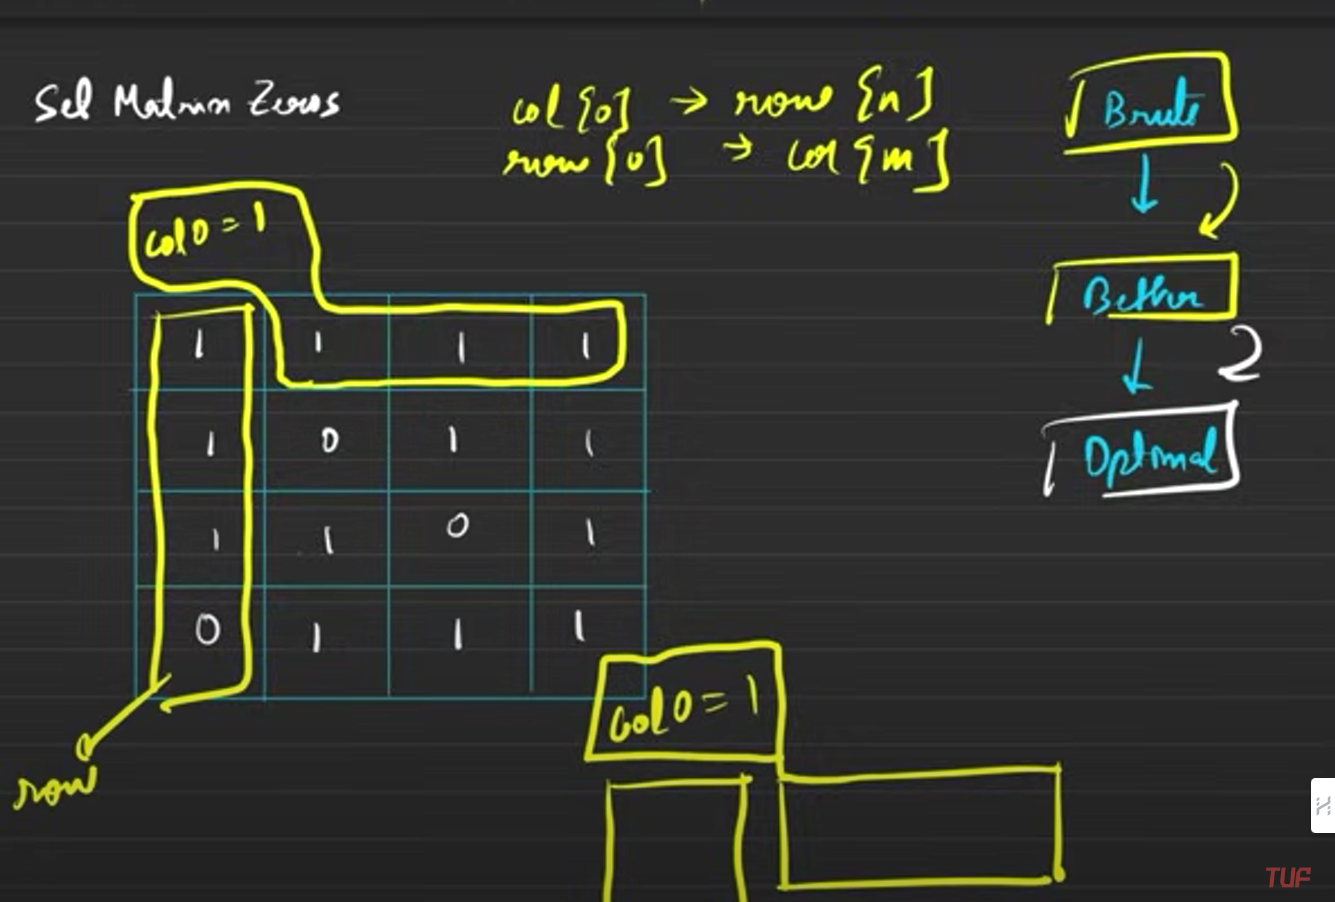 Set Matrix Zeros
col[0] → row[n]
row[0] → col[m]
Brute
Better
2
Optimal
col0 = 1
1 1 1 1
1 0 1 1
1 1 0 1
0 1 1 1
row
col0 = 1
TUF